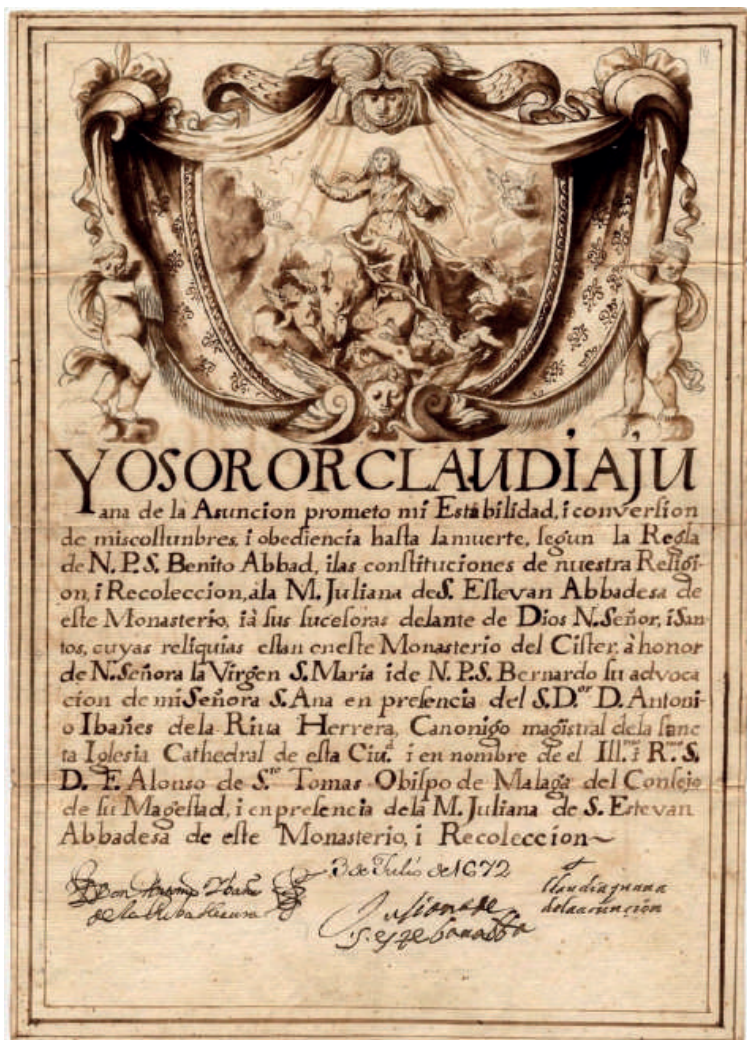 19
YO SOROR CLAUDIA JU
ana de la Asuncion prometo mi Estabilidad, i conversion
de mis costunbres, i obediencia hasta la muerte, segun la Regla
de N. P. S. Benito Abbad, i las constituciones de nuestra Religi-
on, i Recoleccion, à la M. Juliana de S. Estevan Abbadesa de
este Monasterio, i à sus sucesoras delante de Dios N. Señor, i San
tos, cuyas reliquias estan en este Monasterio del Cister, à honor
de N. Señora la Virgen S. Maria i de N. P. S. Bernardo su advoca
cion de mi Señora S. Ana en presencia del S. D.or D. Antoni
o Ibañes de la Riua Herrera, Canonigo magistral de la sanc
ta Iglesia Cathedral de esta Ciu.d i en nombre de el Ill.mo i R.mo S.
D. F. Alonso de S.to Tomas Obispo de Malaga del Consejo
de su Magestad, i en presencia de la M. Juliana de S. Estevan
Abbadesa de este Monasterio, i Recoleccion~
3 de Julio de 1672
Don Antonio Ybañes
de la Riba Herrera
Juliana de
S. esteban abba
Claudia juana
de la asunción